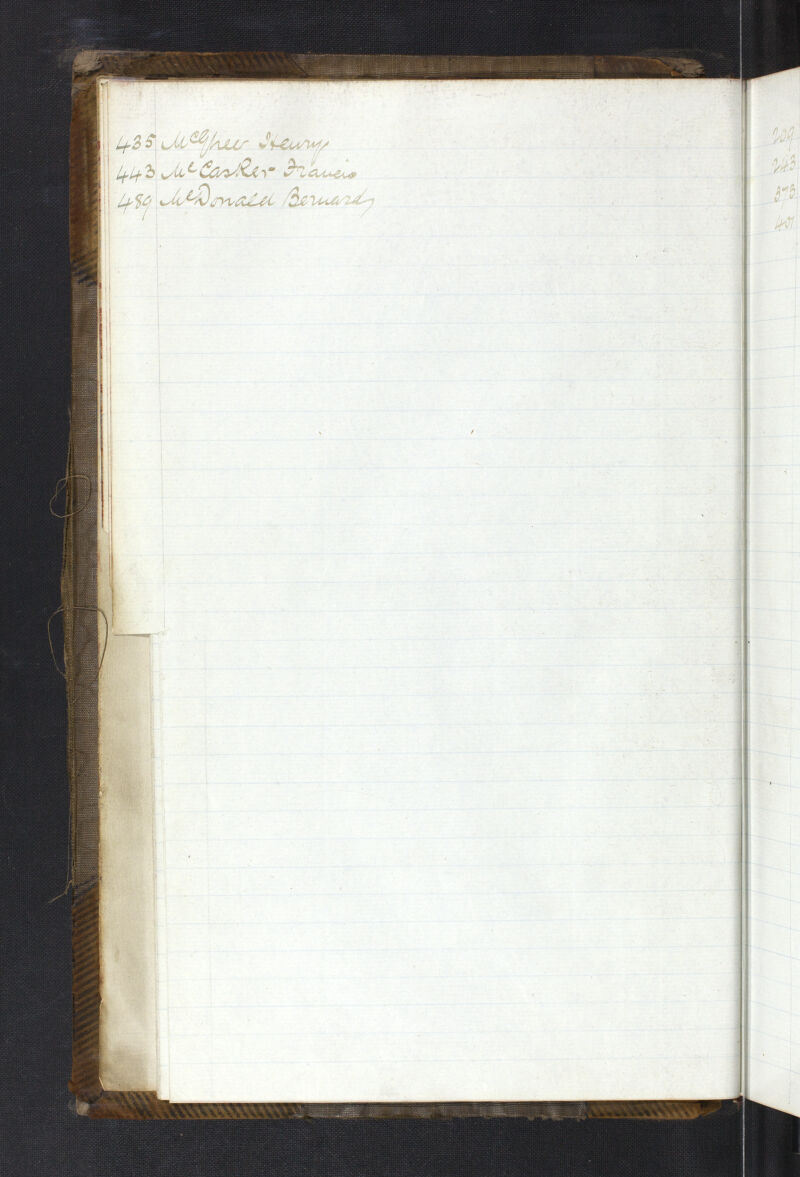 435 McGhee Henry
443 McCasker Francis
489 McDonald Bernard
209
243
373
401